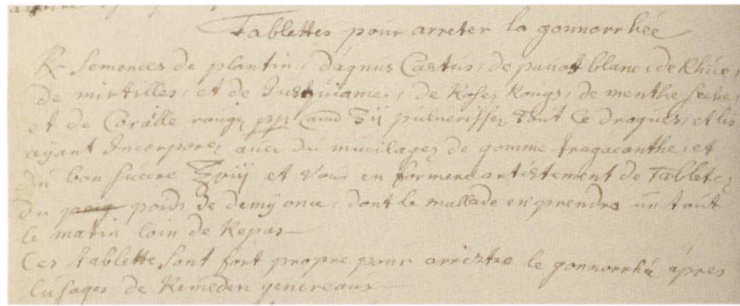 Tablettes pour arreter la gonnorrhée
R semences de plantin, dagnus Castus, de pavot blanc, de Rhüe,
de mirtilles, et de Jusquiame, de Roses Rouges, de menthe seche,
et de Coralle rouge ppt ana ʒij pulverissez tout ce drogues, et les
ayant Incorporez avec du mucilages de gomme tragacanthe, et
du bon succre et vous en formere artistement de Tablets,
du poids de demy once, dont le mallade en prendra un tout
le matin loin de Repas—
Ces tablette sont fort propre pour arrestre le gonnorrhée apres
lusages de Remeden genereaux—